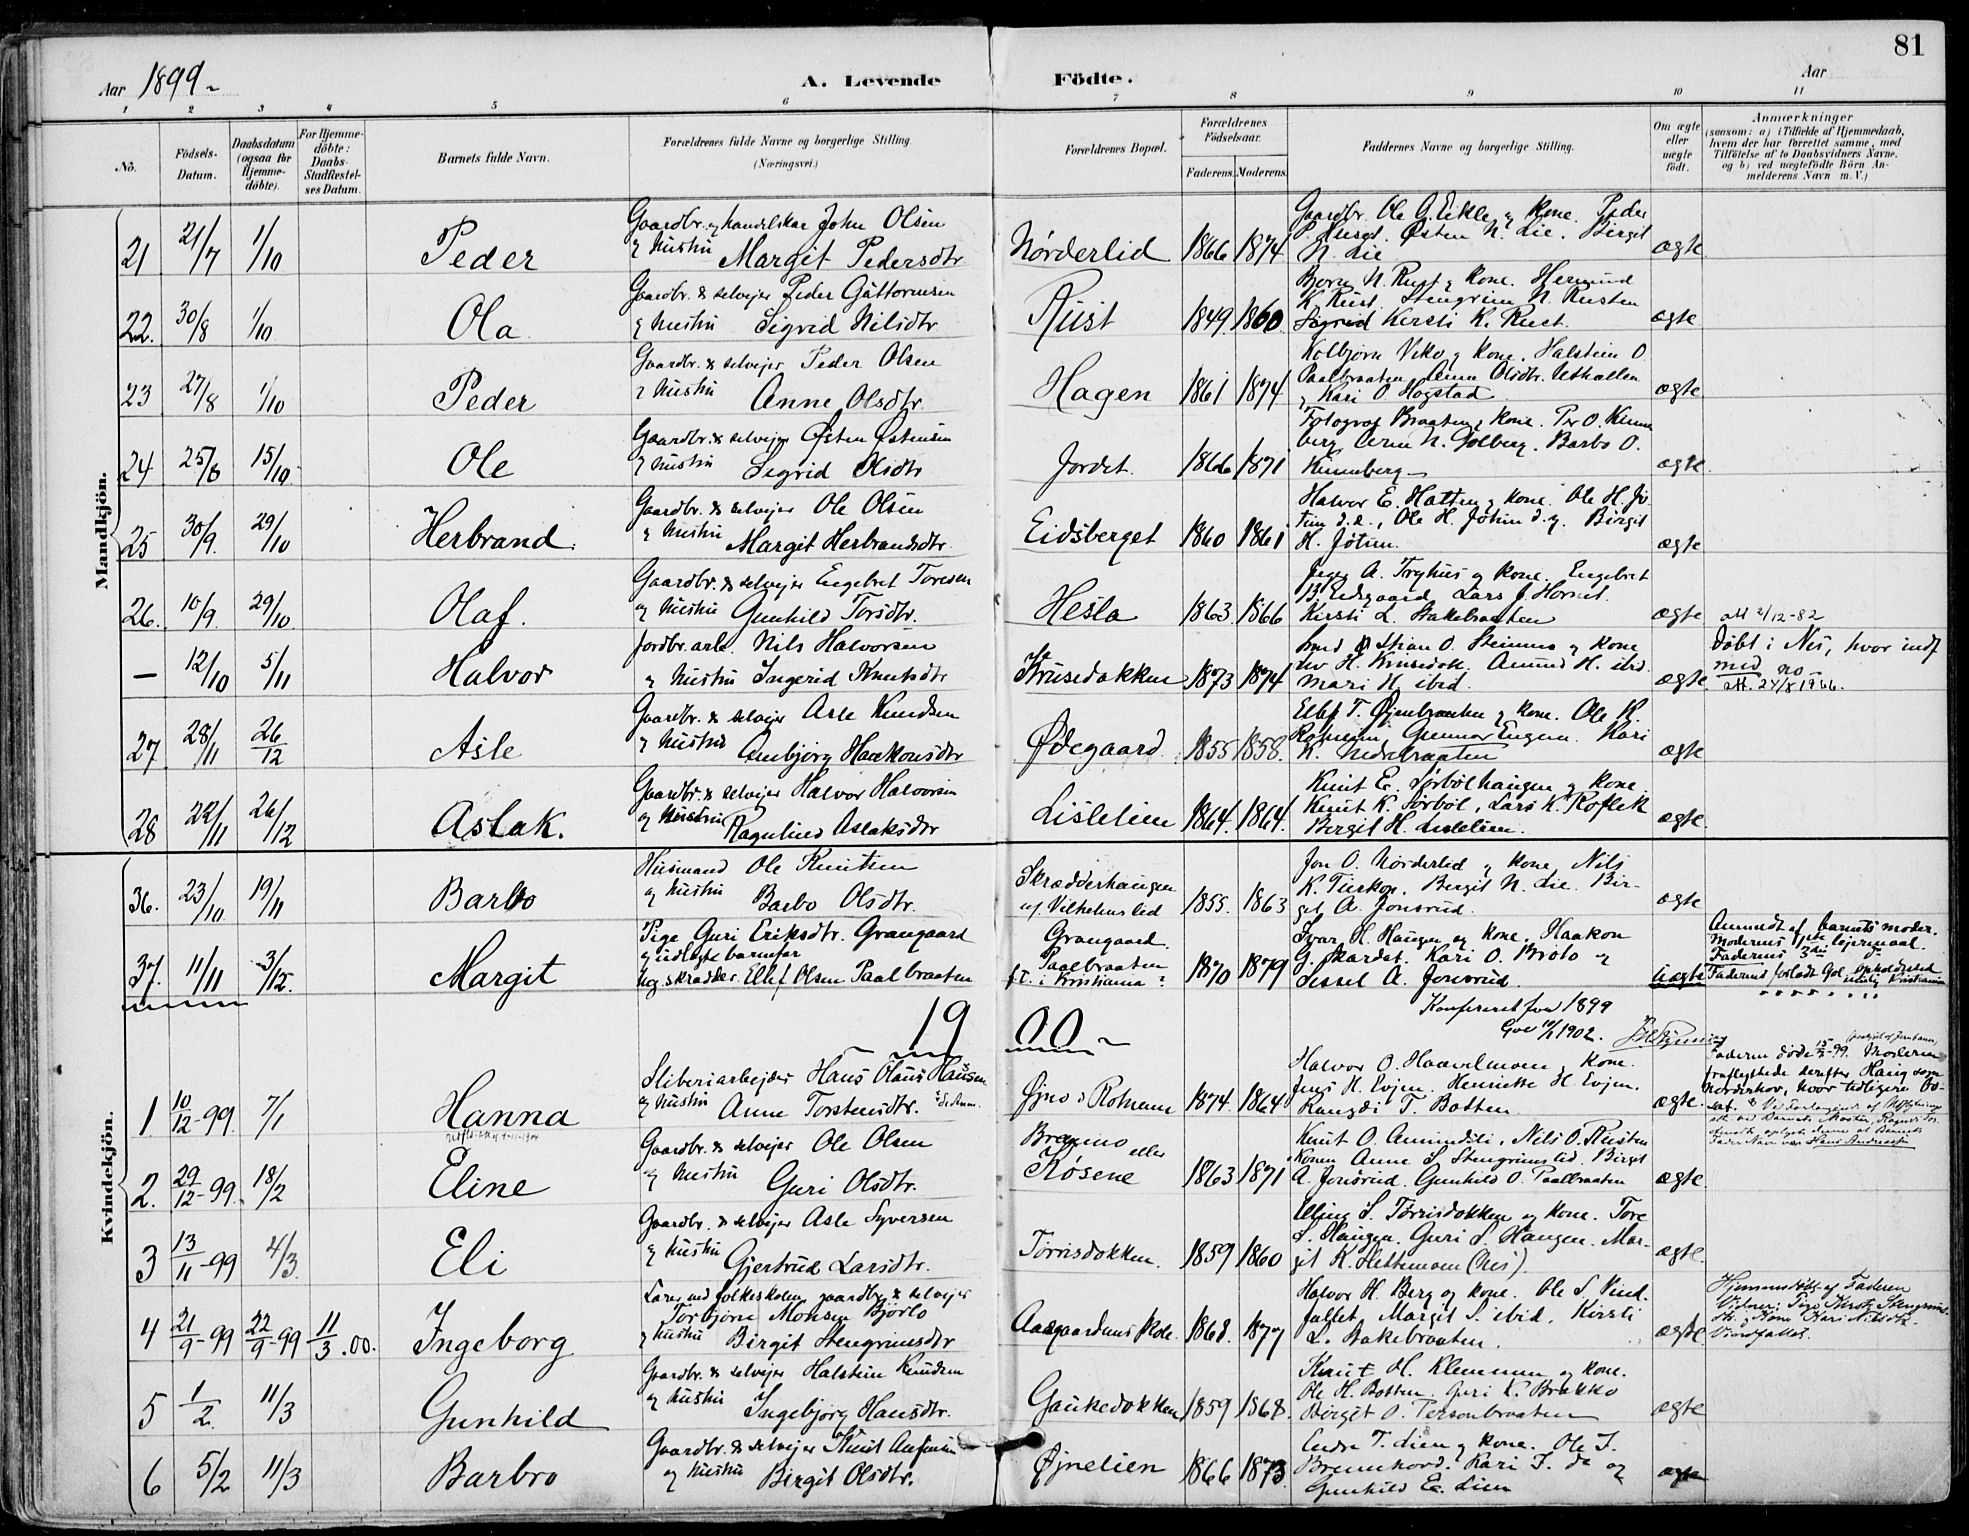 81
Aar 1899.
A. Levende Födte.
Aar
1 2 3 4 5 6 7 8 9 10 11
No.
Födsels-Datum.
Daabsdatum (ogsaa for Hjemme-döbte).
For Hjemme-döbte: Daabs-Stadfæstel-ses Datum.
Barnets fulde Navn.
Forældrenes fulde Navne og borgerlige Stilling. (Næringsvei.)
Forældrenes Bopæl.
Forældrenes Födselsaar.
Faderens. Moderens.
Faddernes Navne og borgerlige Stilling.
Om ægte eller uægte födt.
Anmærkninger
(saasom: a) i Tilfælde af Hjemmedaab,
hvem der har forrettet samme, med
Tilföielse af to Daabsvidners Navne.
og b) ved uægtefödte Börn An-
melderens Navn m. V.)
Mandkjön.
21 21/7 1/10 Peder
Gaardbr. og handelskar John Olsen
og hustru Margit Pedersdtr
Nørderlid 1866 1874
Gaardbr. Ole G. Eikle og kone. Peder
P. Østen N. Lie. Birgit
N. Lie
ægte
22. 30/8 1/10 Ola
Gaardbr. & selvejer Peder Guttormsen
og hustru Sigrid Nilsdtr
Rust 1849. 1860.
Bjørn N. Rust og kone. Hermund
K. Rust. Stengrim N. Rusten
Kersti K. Rust.
ægte
23 27/8 1/10 Peder
Gaardbr. & selvejer Peder Olsen
og hustru Anne Olsdtr.
Hagen 1861 1874
Kolbjørn Veko og kone. Halstein O.
Paalbraaten Anne Olsdtr.
og Kari O. Hogstad
ægte
24 25/8 15/10 Ole
Gaardbr. & selvejer Østen Østensen
og hustru Sigrid Olsdtr
Jordet. 1866 1871
Fotograf Braaten og kone. Per O.
N. Golberg. Barbo O.
ægte
25 30/9. 29/10 Herbrand
Gaardbr. & selvejer Ole Olsen
og hustru Margit Herbrandsdtr
Eidsberget 1860 1861
Halvor E. Hatten og kone. Ole H. Jø-
tun d.e., Ole H. Jøtun d.y. Birgit
H. Jøtun.
ægte
26. 10/9. 29/10. Olaf.
Gaardbr. & selvejer Engebret Toresen
og hustru Gunhild Torsdtr.
Hesla 1863 1866
A. Tryhus og kone. Engebret
B. Eidsgaard Lars J.
Kirsti L. Stakebraaten
ægte
2/12-82
— 12/10 5/11 Halvor
Jordbr. arb. Nils Halvorsen
og hustru Ingerid Knutsdtr
Krusedokken 1873 1874
O. og kone
H. Krusedok. Amund H. ibid.
Mari H. ibid.
ægte
Døbt i Nes, hvor indf.
med no —
24/8 1966.
27 28/11 26/12 Asle
Gaardbr. & selvejer Asle Knudsen
og hustru Anbjørg Haakonsdtr
Ødegaard 1855 1858.
T. Øjnbraaten og kone. Ole K.
Gunnor Engen. Kari
K. Nedrbraaten
ægte
28 22/11 26/12 Aslak.
Gaardbr. & selvejer Halvor Halvorsen
og hustru Ragnhild Aslaksdtr
Lislelien 1864. 1864.
Knut E. Sørbølhaugen og kone
Knut K. Sørbøl, Lars K.
Birgit H. Lislelien.
ægte.
Kvindekjön.
36. 23/10. 19/11 Barbo
Husmand Ole Knutsen
og hustru Barbo Olsdtr.
Skrædderhaugen
u/ Vilhelmslid
1855. 1863
Jon O. Nørderlid og kone, Nils
K. Birgit N. Lie. Bir-
git A. Jonsrud.
ægte
37. 11/11 3/12. Margit
Pige Guri Eriksdtr. Grangaard
og udlagte barnefar
Ug. skrædder Ellef Olsen Paalbraaten
Grangaard.
Paalbraaten
f. T. i Kristiania
1870 1879
Ivar H. Haugen og kone. Haakon
G. Skardet. Kari O. Broto og
Sissel A. Jonsrud.
uægte
Anmeldt af barnets moder.
Moderens 1ste lejermaal
Faderens 3die do
Faderens forladt Gol, opholdssted
Kristiania
Konfereret for 1899
Gol 10/1 1902.
19 00 —
1. 10/12-99 7/1 Hanna
Sliberiarbejder Hans Olaus Hansen
og hustru Anne Torstensdtr. se Anm.
Øjno i Rotneim 1874. 1864
Halvor O. Haavelmoen kone.
Jens H. Evjen. Henriette H. Evjen.
T. Botten
ægte.
Faderen døde 99. Moderen
fraflyttede derefter
Norderhov, hvor tidligere bo-
sat.
Hans Andreassen
2. 29/12-99. 18/2 Eline
Gaardbr. & selvejer Ole Olsen
og hustru Guri Olsdtr.
eller
Røsene 1863 1871
Knut O. Nils O. Rusten
Konen Anne S. Stengrimslid. Birgit
A. Jonsrud. Gunhild O. Paalbraaten
ægte
3 13/11-99 4/3 Eli
Gaardbr. & selvejer Asle Syversen
og hustru Gjertrud Larsdtr.
Torrisdokken. 1859 1860
Elling S. Torrisdokken og kone. Tore
S. Haugen. Guri S. Haugen. Mar-
git K. (Nes).
ægte.
4 21/9-99 22/9-99 11/3.00. Ingeborg
Lærer ved folkeskolen, gaardbr. & selvejer
Torbjørn Monsen Bjørlo
og hustru Birgit Stengrimsdtr
Aasgaardens skole. 1868. 1877
Halvor H. Berg og kone. Ole S. Vind-
fallet. Margit S. ibid. Kirsti
L. Stakebraaten.
ægte.
Hjemmedøbt af Faderen
Vidner: Pige
Kone Kari Nilsdtr.
Vindfallet.
5 1/2. 11/3 Gunhild
Gaardbr. & selvejer Halstein Knudsen
og hustru Ingebjørg Hansdtr.
Gaukedokken 1859 1868.
Knut H. Klemmen og kone.
Ole H. Botten. Guri K. Brakko
Birgit O.
ægte
6 5/2 11/3 Barbro
Gaardbr. & selvejer Knut
og hustru Birgit Olsdtr.
Øjnelien 1866 1873.
Endre T. Lien og kone. Ole I.
Kari I. do og
Gunhild E. Lien
ægte